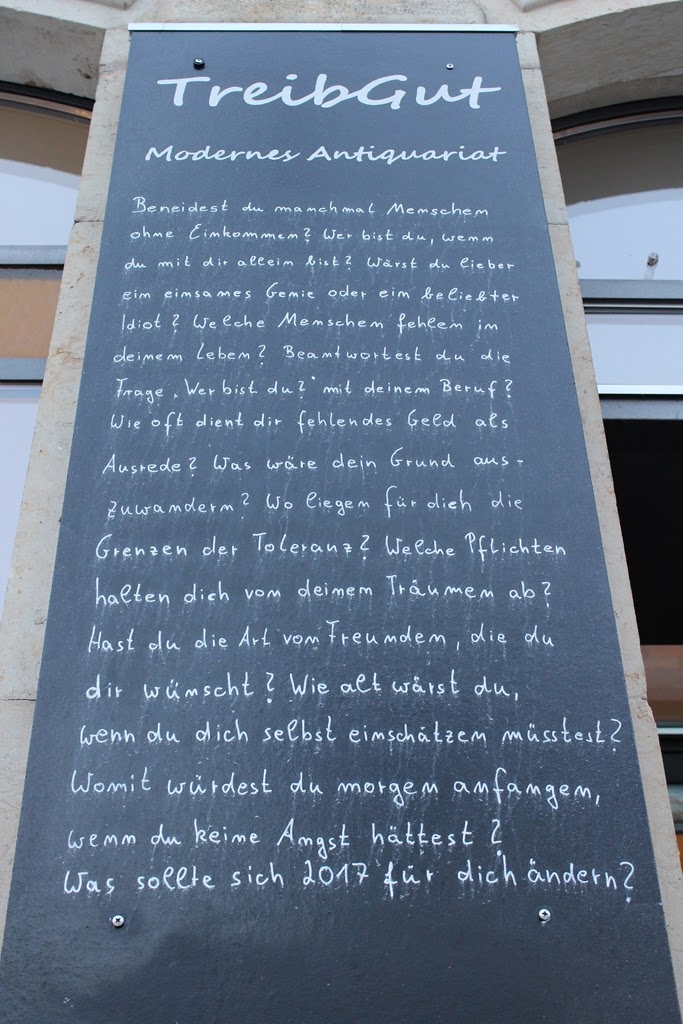 TreibGut
Modernes Antiquariat
Beneidest du manchmal Menschen
ohne Einkommen? Wer bist du, wenn
du mit dir allein bist? Wärst du lieber
ein einsames Genie oder ein beliebter
Idiot? Welche Menschen fehlen in
deinem Leben? Beantwortest du die
Frage „Wer bist du?“ mit deinem Beruf?
Wie oft dient dir fehlendes Geld als
Ausrede? Was wäre dein Grund aus-
zuwandern? Wo liegen für dich die
Grenzen der Toleranz? Welche Pflichten
halten dich von deinen Träumen ab?
Hast du die Art von Freunden, die du
dir wünscht? Wie alt wärst du,
wenn du dich selbst einschätzen müsstest?
Womit würdest du morgen anfangen,
wenn du keine Angst hättest?
Was sollte sich 2017 für dich ändern?